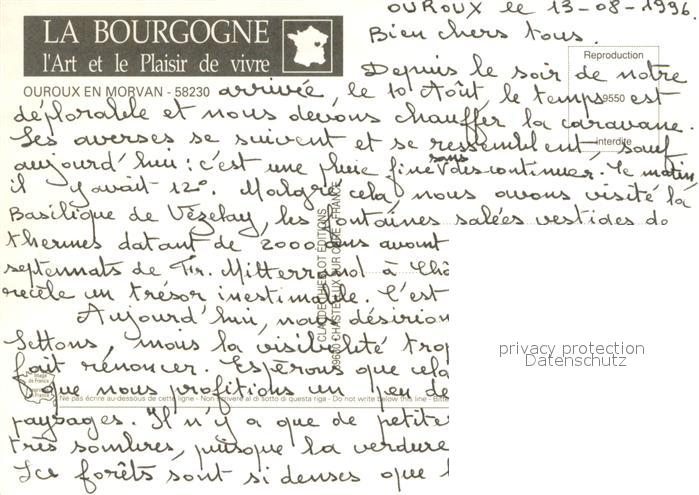 OUROUX le 13-08-1996.
Bien chers tous.
LA BOURGOGNE
l'Art et le Plaisir de vivre
Reproduction
9550
interdite
OUROUX EN MORVAN - 58230
Depuis le soir de notre
arrivée le 10 Août, le temps est
déplorable et nous devons chauffer la caravane.
Les averses se suivent et se ressemblent, sauf
aujourd'hui : c'est une pluie fine sans discontinuer. Ce matin,
il y avait 12°. Malgré cela, nous avons visité la
Basilique de Vézelay, les fontaines salées vestiges de
thermes datant de 2000 ans avant
septennats de Fr. Mitterrand à Châ
recèle un trésor inestimable. C'est
Aujourd'hui, nous désirion
Settons, mais la visibilité trop
fait renoncer. Espérons que cela
que nous profitions un peu de
Ne pas écrire au-dessous de cette ligne - Non scrivere al di sotto di questa riga - Do not write below this line - Bitte
paysages. Il n'y a que de petite
très sombres, puisque la verdure
Les forêts sont si denses que l
CHASTELLUX SUR CURE - FRANCE
privacy protection
Datenschutz